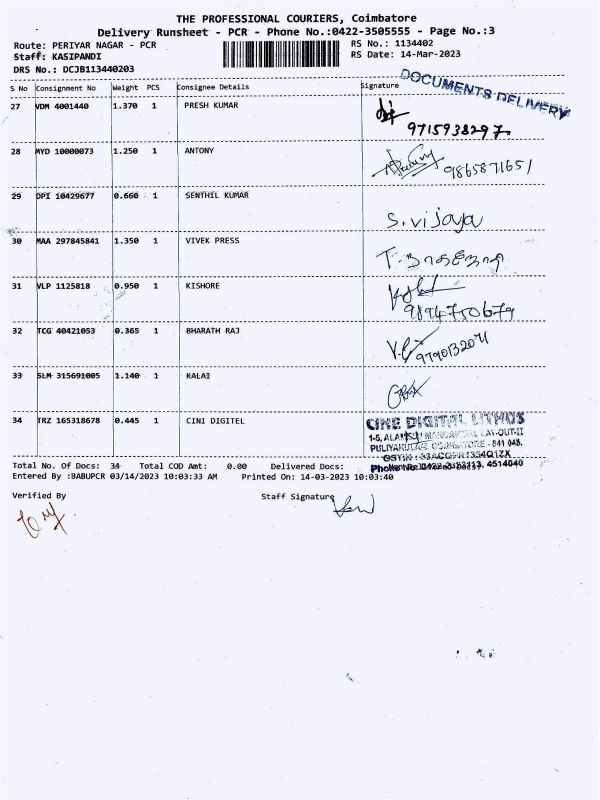 THE PROFESSIONAL COURIERS, Coimbatore
Delivery Runsheet - PCR - Phone No.:0422-3505555 - Page No.:3
Route: PERIYAR NAGAR - PCR RS No.: 1134402
Staff: KASIPANDI RS Date: 14-Mar-2023
DRS No.: DCJB113440203
DOCUMENTS DELIVERY
S No Consignment No Weight PCS Consignee Details Signature
27 VDM 4001440 1.370 1 PRESH KUMAR
9715938297
28 MYD 10000073 1.250 1 ANTONY
9865871651
29 DPI 10429677 0.660 1 SENTHIL KUMAR
S. vijaya
30 MAA 297845841 1.350 1 VIVEK PRESS
31 VLP 1125818 0.950 1 KISHORE
9894750679
32 TCG 40421053 0.365 1 BHARATH RAJ
9790132071
33 SLM 315691005 1.140 1 KALAI
34 TRZ 165318678 0.445 1 CINI DIGITEL
CINE DIGITAL LITHOS
LAY-OUT-II
PULIYAKULAM COIMBATORE - 641 045.
Total No. Of Docs: 34 Total COD Amt: 0.00 Delivered Docs:
4514040
Entered By :BABUPCR 03/14/2023 10:03:33 AM Printed On: 14-03-2023 10:03:40
Verified By Staff Signature